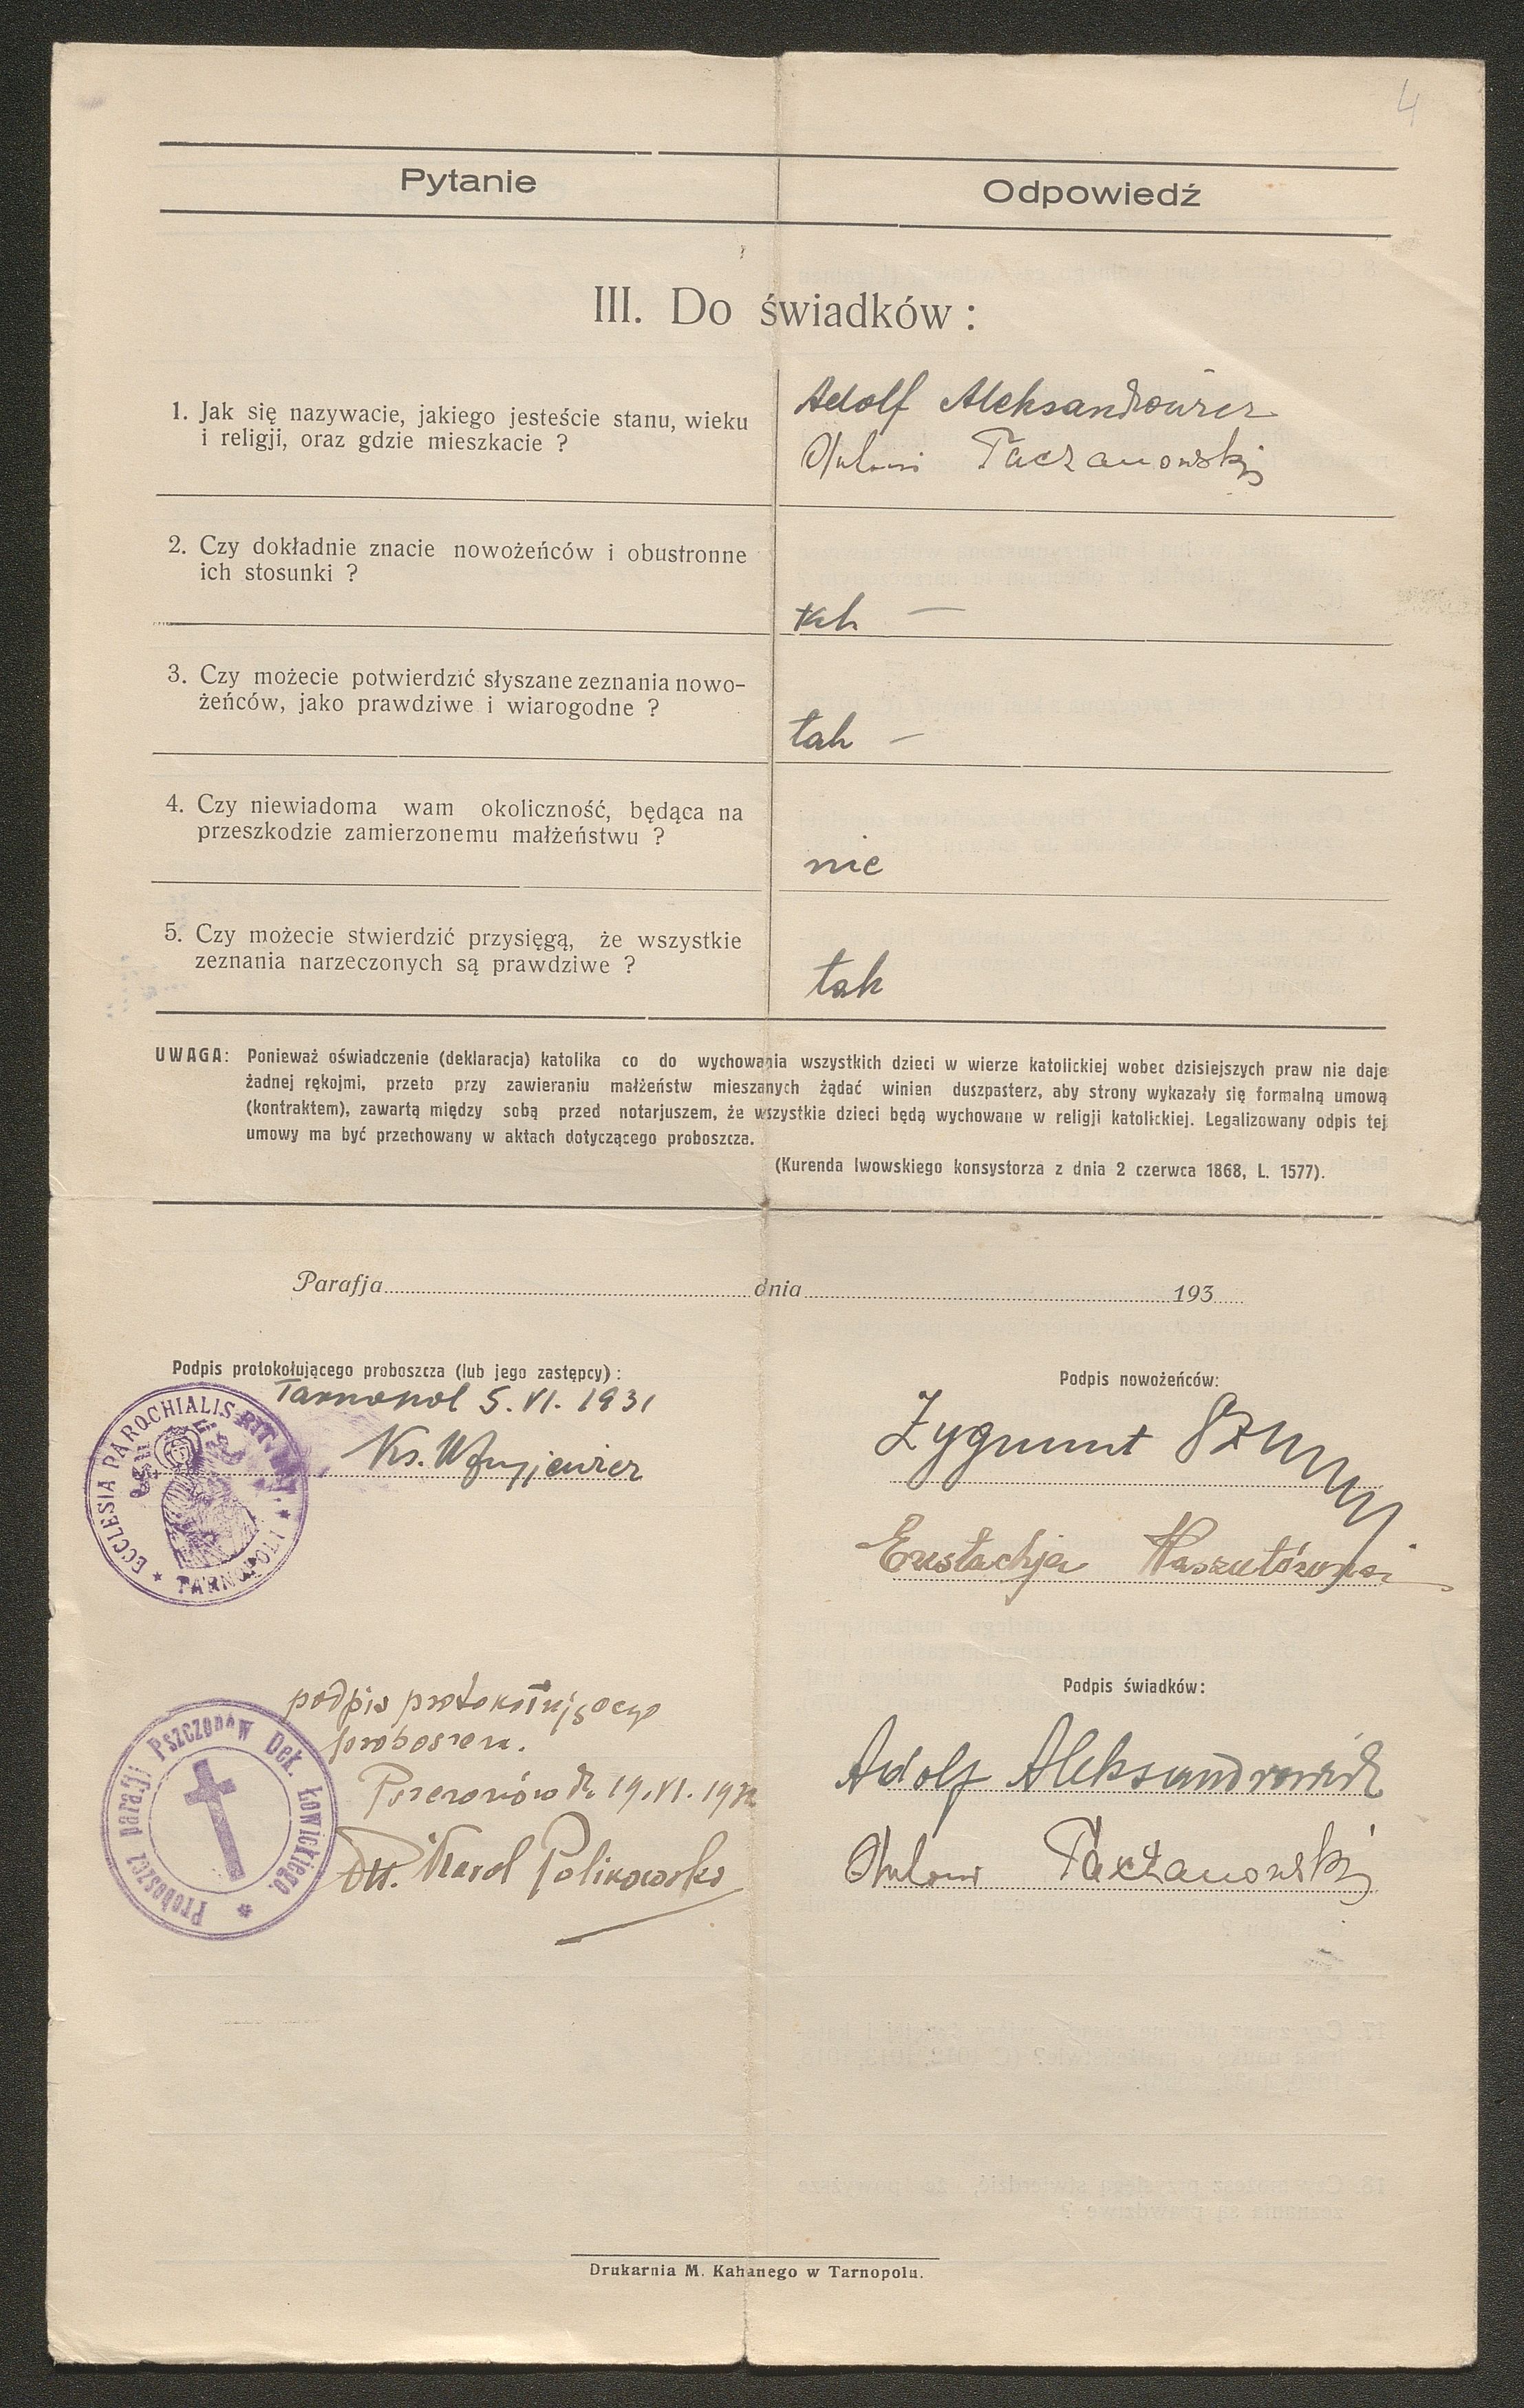 4
Pytanie
Odpowiedź
III. Do świadków:
1. Jak się nazywacie, jakiego jesteście stanu, wieku
i religji, oraz gdzie mieszkacie ?
Adolf Aleksandrowicz
Antoni Taczanowski
2. Czy dokładnie znacie nowożeńców i obustronne
ich stosunki ?
tak —
3. Czy możecie potwierdzić słyszane zeznania nowo-
żeńców, jako prawdziwe i wiarogodne ?
tak —
4. Czy niewiadoma wam okoliczność, będąca na
przeszkodzie zamierzonemu małżeństwu ?
nie
5. Czy możecie stwierdzić przysięgą, że wszystkie
zeznania narzeczonych są prawdziwe ?
tak
UWAGA: Ponieważ oświadczenie (deklaracja) katolika co do wychowania wszystkich dzieci w wierze katolickiej wobec dzisiejszych praw nie daje
żadnej rękojmi, przeto przy zawieraniu małżeństw mieszanych żądać winien duszpasterz, aby strony wykazały się formalną umową
(kontraktem), zawartą między sobą przed notarjuszem, że wszystkie dzieci będą wychowane w religji katolickiej. Legalizowany odpis tej
umowy ma być przechowany w aktach dotyczącego proboszcza.
(Kurenda lwowskiego konsystorza z dnia 2 czerwca 1868, L. 1577).
Parafja dnia 193
Podpis protokołującego proboszcza (lub jego zastępcy) :
Tarnopol 5. VI. 1931
Ks.
ECCLESIA PAROCHIALIS RIT. LAT. * TARNOPOLI *
Podpis nowożeńców:
Zygmunt
Eustachja
podpis protokołującego
proboszcza.
Pszczonów d. 19. VI. 193
Karol
Proboszcz parafji Pszczonów Dek. Łowickiego. *
Podpis świadków:
Adolf Aleksandrowicz
Antoni Taczanowski
Drukarnia M. Kahanego w Tarnopolu.